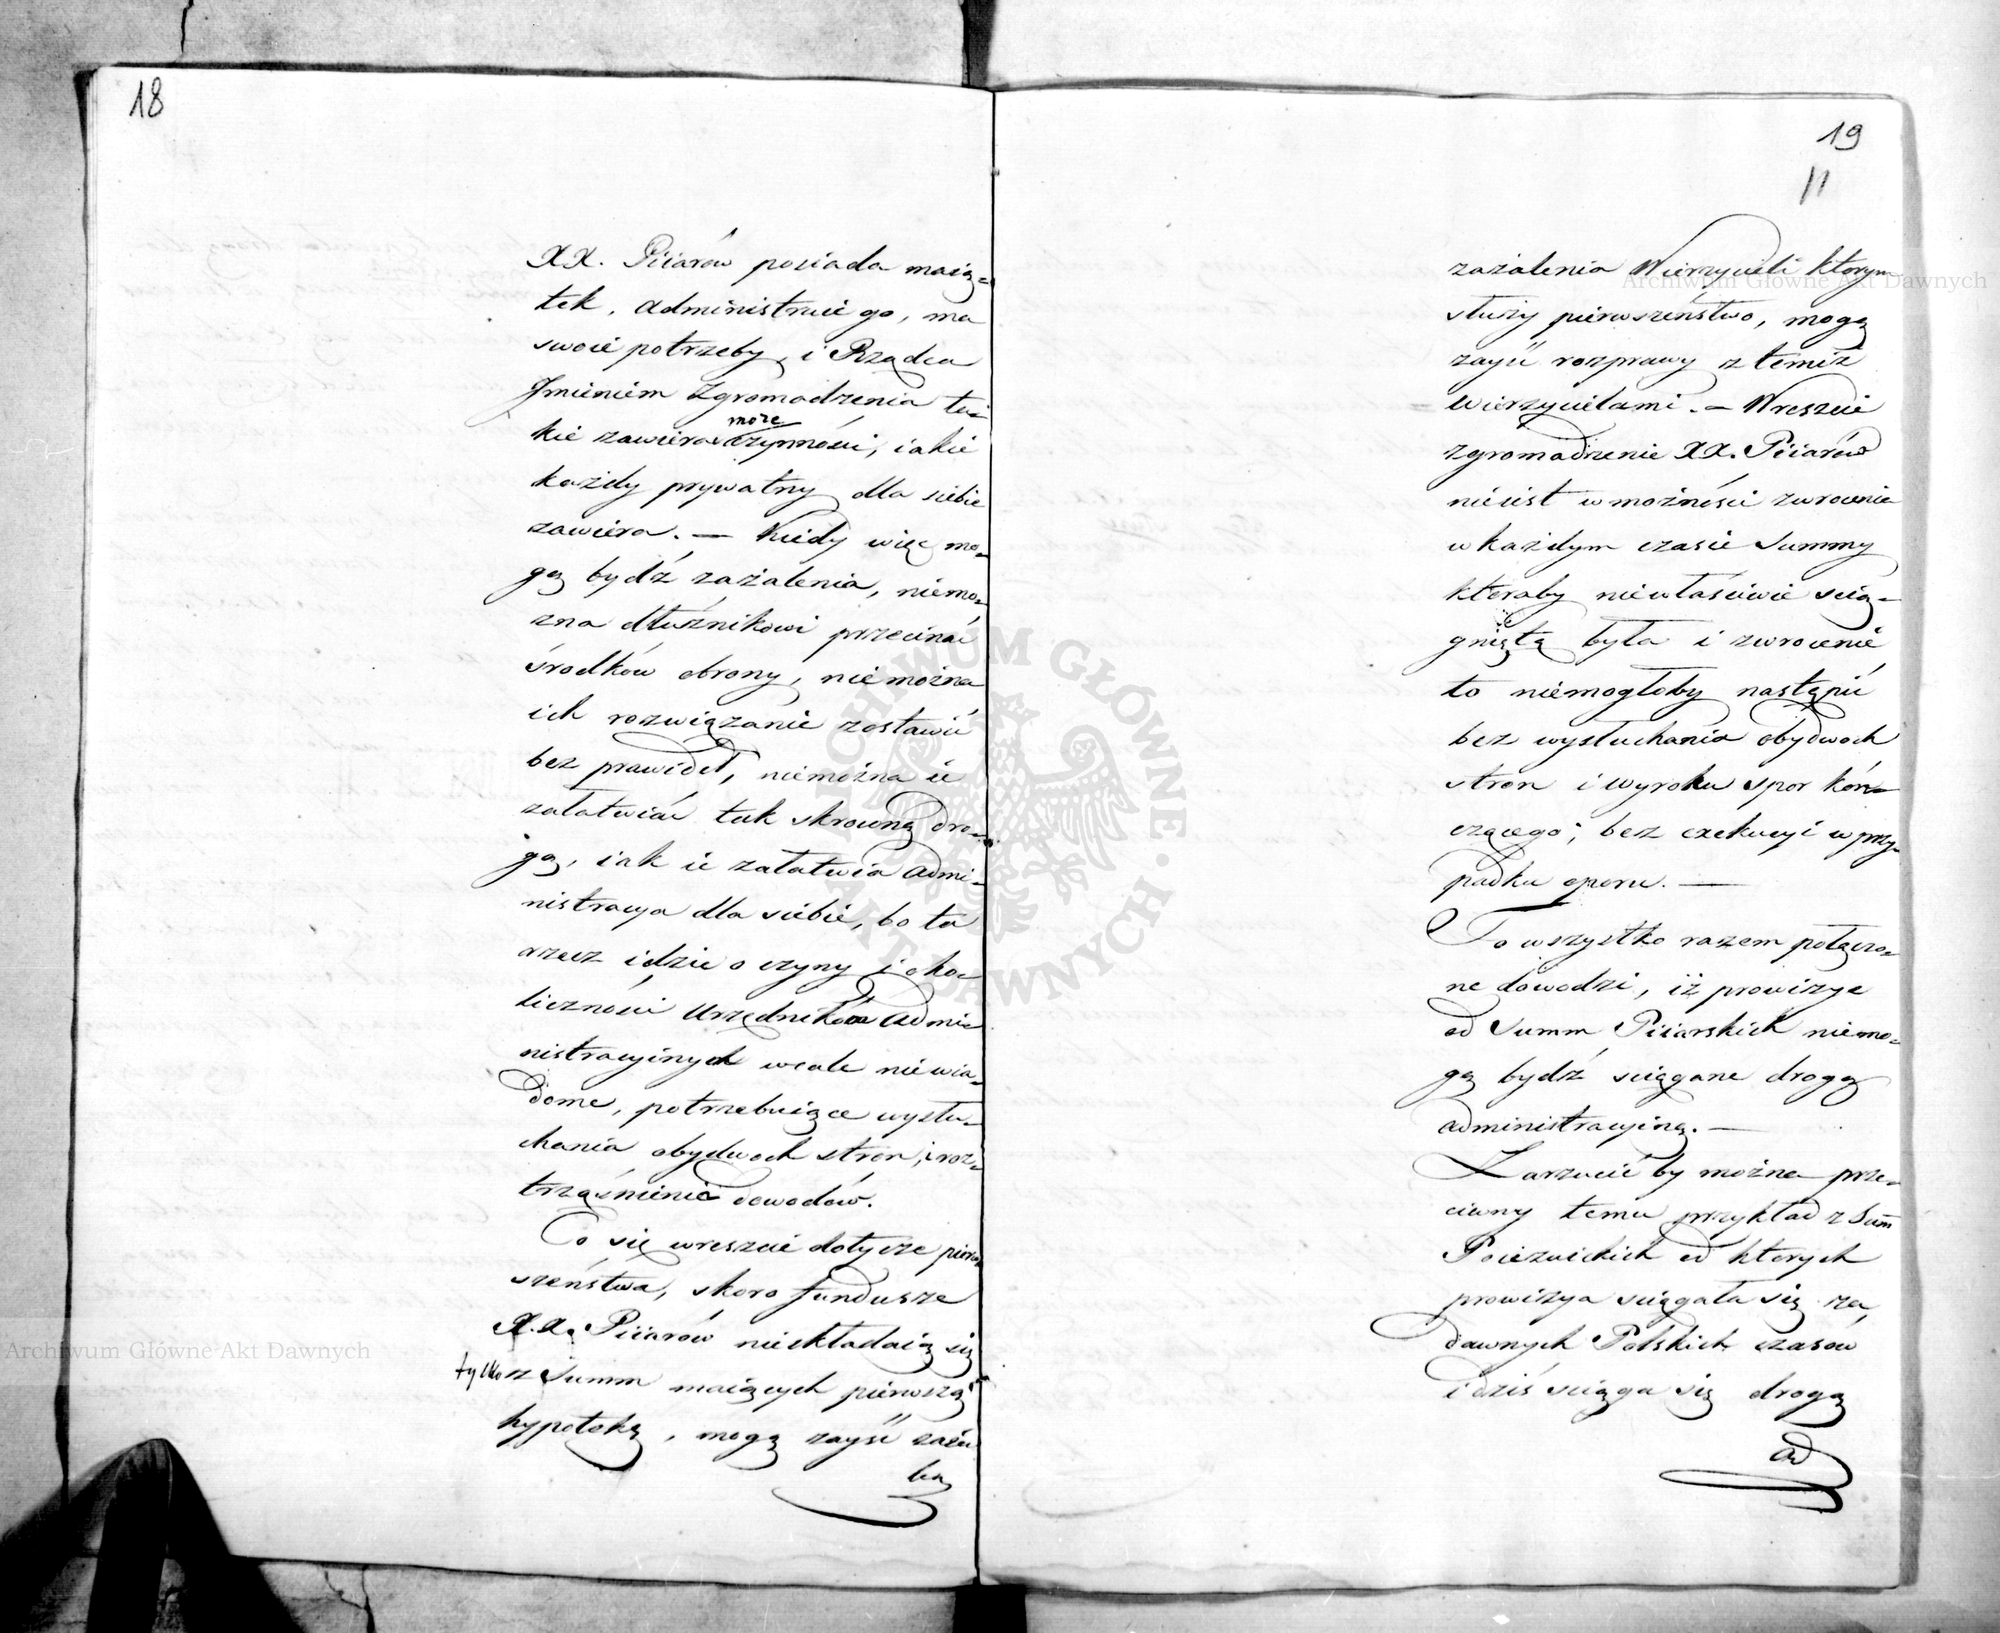 18
XX. Piiarów posiada maią-
tek, administruie go, ma
swoie potrzeby, i Rządca
Jmieniem Zgromadzenia ta-
może
kie zawierać czynności, iakie
każdy prywatny dla siebie
zawiera. — Kiedy więc mo-
gą bydź zażalenia, niemo-
żna dłużnikowi przecinać
środków obrony, niemożna
ich rozwiązanie zostawić
bez prawideł, niemożna ie
załatwiać tak skrowną dro-
gą, iak ie załatwia admi-
nistracya dla siebie, bo tu
rzecz idzie o czyny i oko-
liczności Urzędników admi-
nistracyinych wcale niewia-
dome, potrzebuiące wysłu-
chania obydwoch stron, i roz-
trząśnienie dowodów.
Co się wreszcie dotycze pierw-
szeństwa, skoro fundusze
X.X. Piiarów nieskładaią się
tylko z Summ maiących pierwszą
hypotekę, mogą zayść zaża
len
19
11
zażalenia Wierzycieli ktorym
służy pierwszeństwo, mogą
zayść rozprawy z temiż
Wierzycielami. — Wreszcie
zgromadzenie XX. Piiarów
nieiest w możności zwrocenia
w każdym czasie Summy
ktoraby niewłaściwie scią-
gniętą była i zwrocenie
to niemogłoby nastąpić
bez wysłuchania obydwoch
stron i wyroku spor koń-
czącego, bez exekucyi w przy-
padku oporu. —
To wszystko razem połączo-
ne dowodzi, iż prowizye
od Summ Piiarskich niemo-
gą bydź sciągane drogą
administracyiną. —
Zarzucić by można prze-
ciwny temu przykład z Sum̅
Poiezuickich od ktorych
prowizya sciągała się za
dawnych Polskich czasow
i dziś sciąga się drogą
ad
Archiwum Główne Akt Dawnych
Archiwum Główne Akt Dawnych
ARCHIWUM GŁÓWNE AKT DAWNYCH